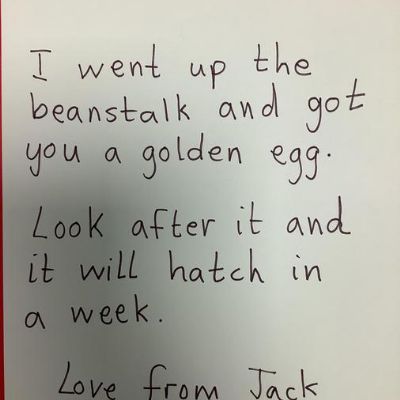 I went up the
beanstalk and got
you a golden egg.
Look after it and
it will hatch in
a week.
Love from Jack